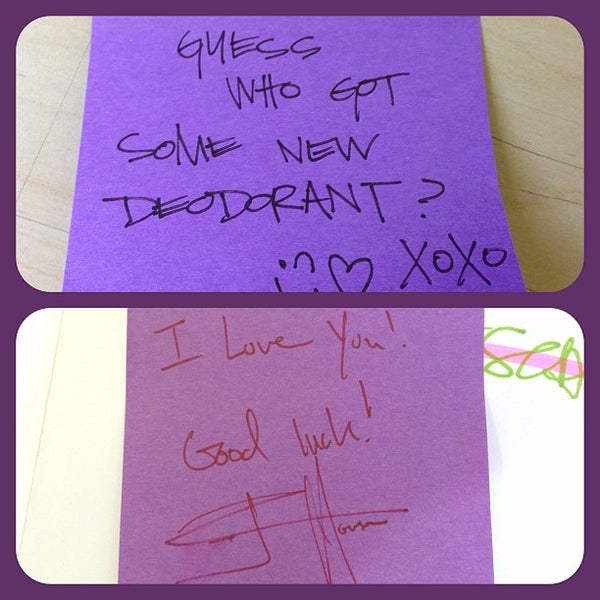 GUESS
WHO GOT
SOME NEW
DEODORANT?
XOXO
I Love You!
Good luck!